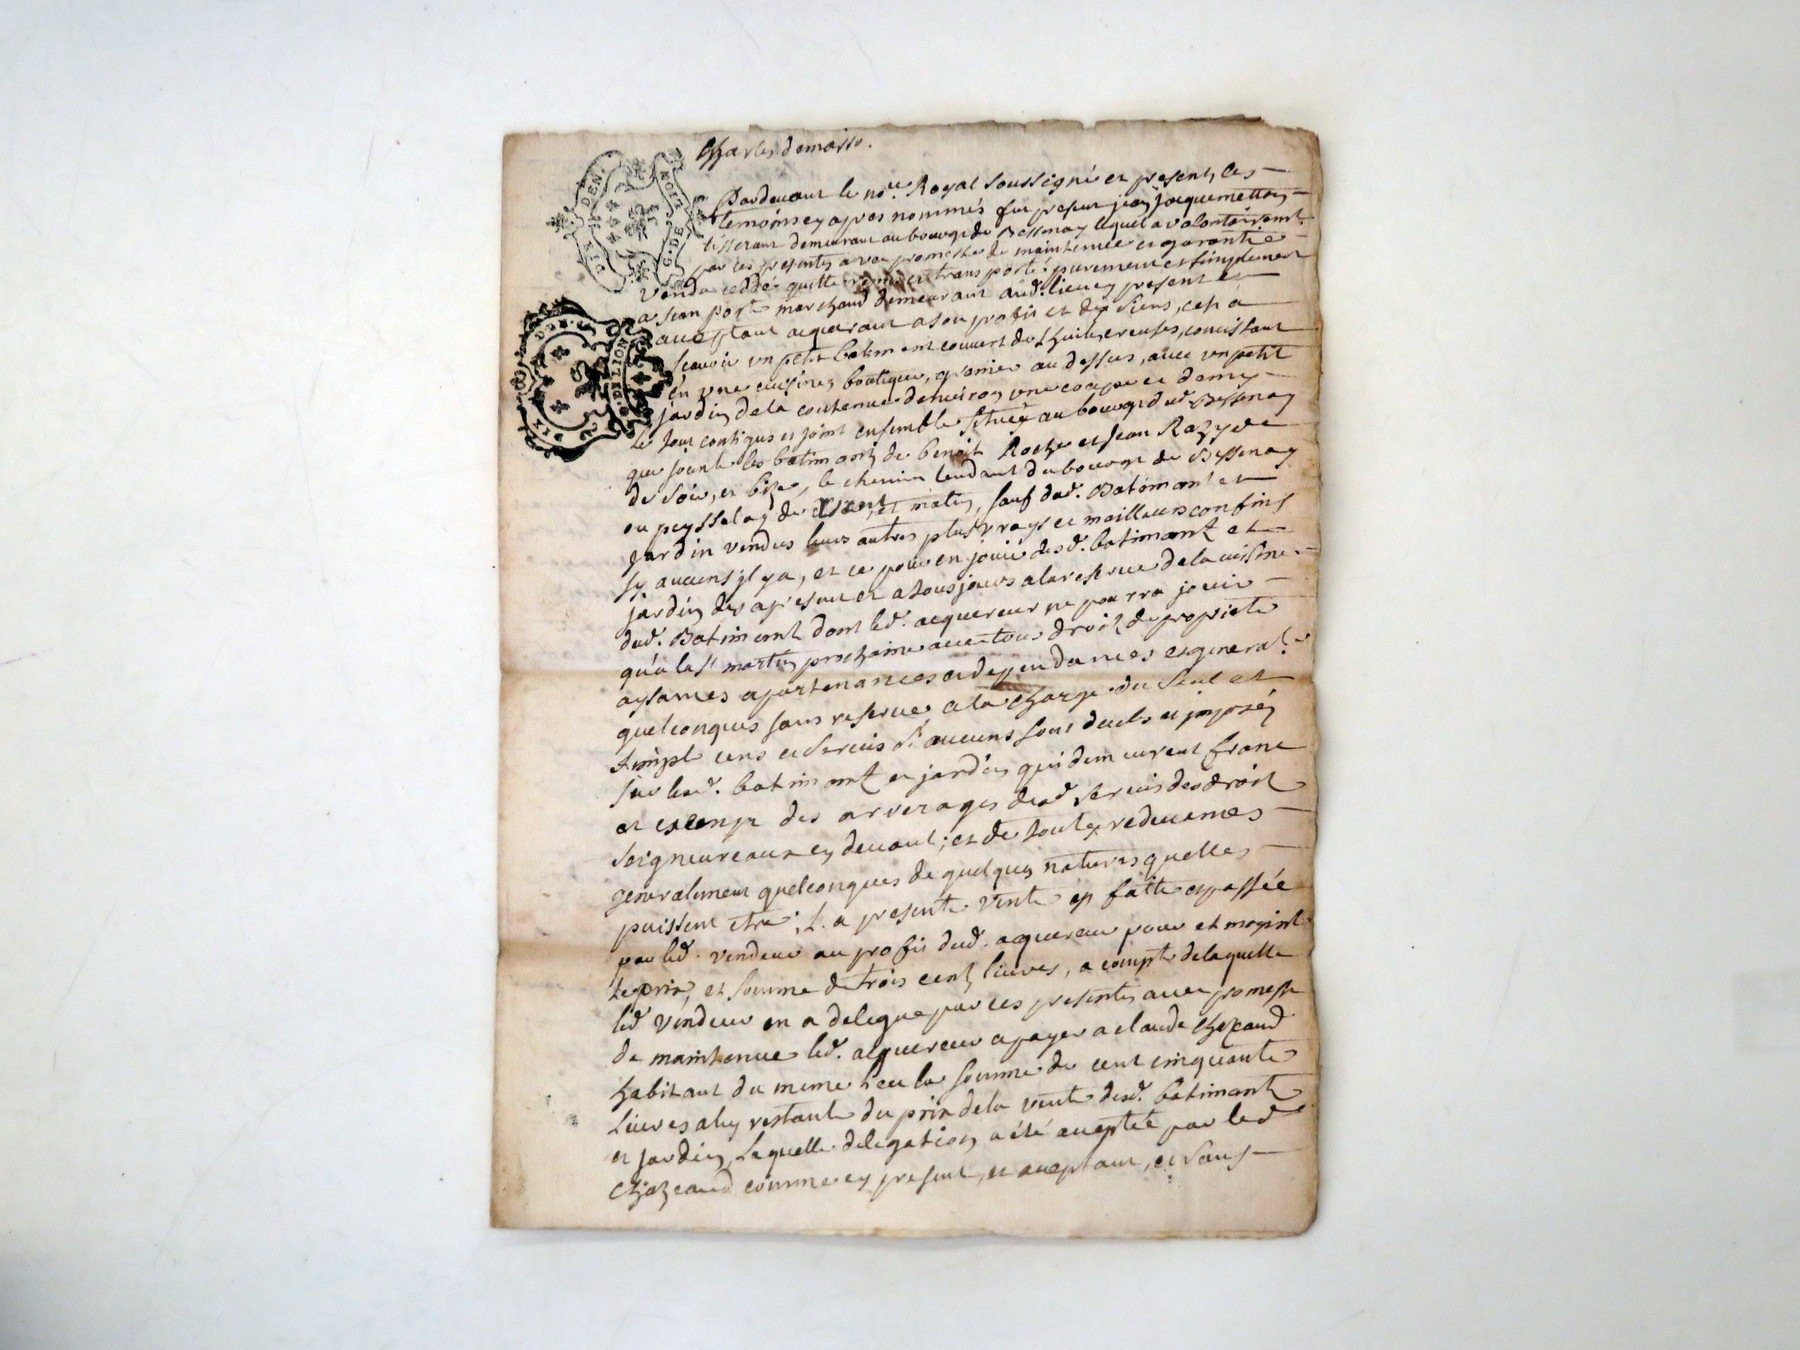 DIX DEN.
G. DE
DIX DEN.
G. DE LION
Pardevant le no.re Royal soussigné et present, les
temoins cy apres nommés fut present jean jacquemetton
tisserant demeurant au bourg de Bessenay lequel a volontairement
par ces presentes avec promesse de maintenue et garantie
vendu cedde quitte remis et transporté purement et simplement
a jean marchand demeurant aud. lieu cy present et
acceptant acquerant a son profit et des siens, c'est a
scavoir un petit batiment couvert de thuiles creuses, consistant
en une cuisine, boutique, grenier au dessus, avec un petit
jardin de la contenue d'environ une coupe et demy
le tout contigus et joint ensemble scitué au bourg dud. Bessenay
que joint les batimants de benoit Roche et jean Razy de
de soir, et bize, le chemin tendant du bourg de Bessenay
ou peysselay de vent, et matin, sauf dud. Batimant et
jardin vendus leurs autres plus vrays et meilleurs confins
sy aucuns jl y a, et ce pour en jouir desd. batimant et
jardin des apresent et a tousjours a la reserve de la cuisine
dud. Batimant dont led. acquereur ne pourra jouir
qu'a la st martin prochaine avec tous droits de propriete
aysances apartenances et dependances et general.t
quelconques sans reserve a la charge du seul et
simple cens et servis s'y aucuns sont deubs et jmposés
sur lesd. batimant et jardin qui demeurent franc
et exempt des arrerages desd servis des droit
seigneureaux en devant; et de toutes redevances
generalement quelconques de quelques natures quelles
puissent etre; La presente vente est faitte et passée
par led. vendeur au profit dud. acquereur pour et moyint
le prix, et somme de trois cent livres, a compte de laquelle
led vendeur en a delegue par ces presentes avec promesse
de maintenue led. acquereur a payer a claude Chazaud
habitant du meme lieu la somme de cent cinquante
livres a luy restante du prix de la vente desd. batimant
et jardin, Laquelle delegation a été aceptée par led
Chazeaud comme cy present, et aceptant, et sans